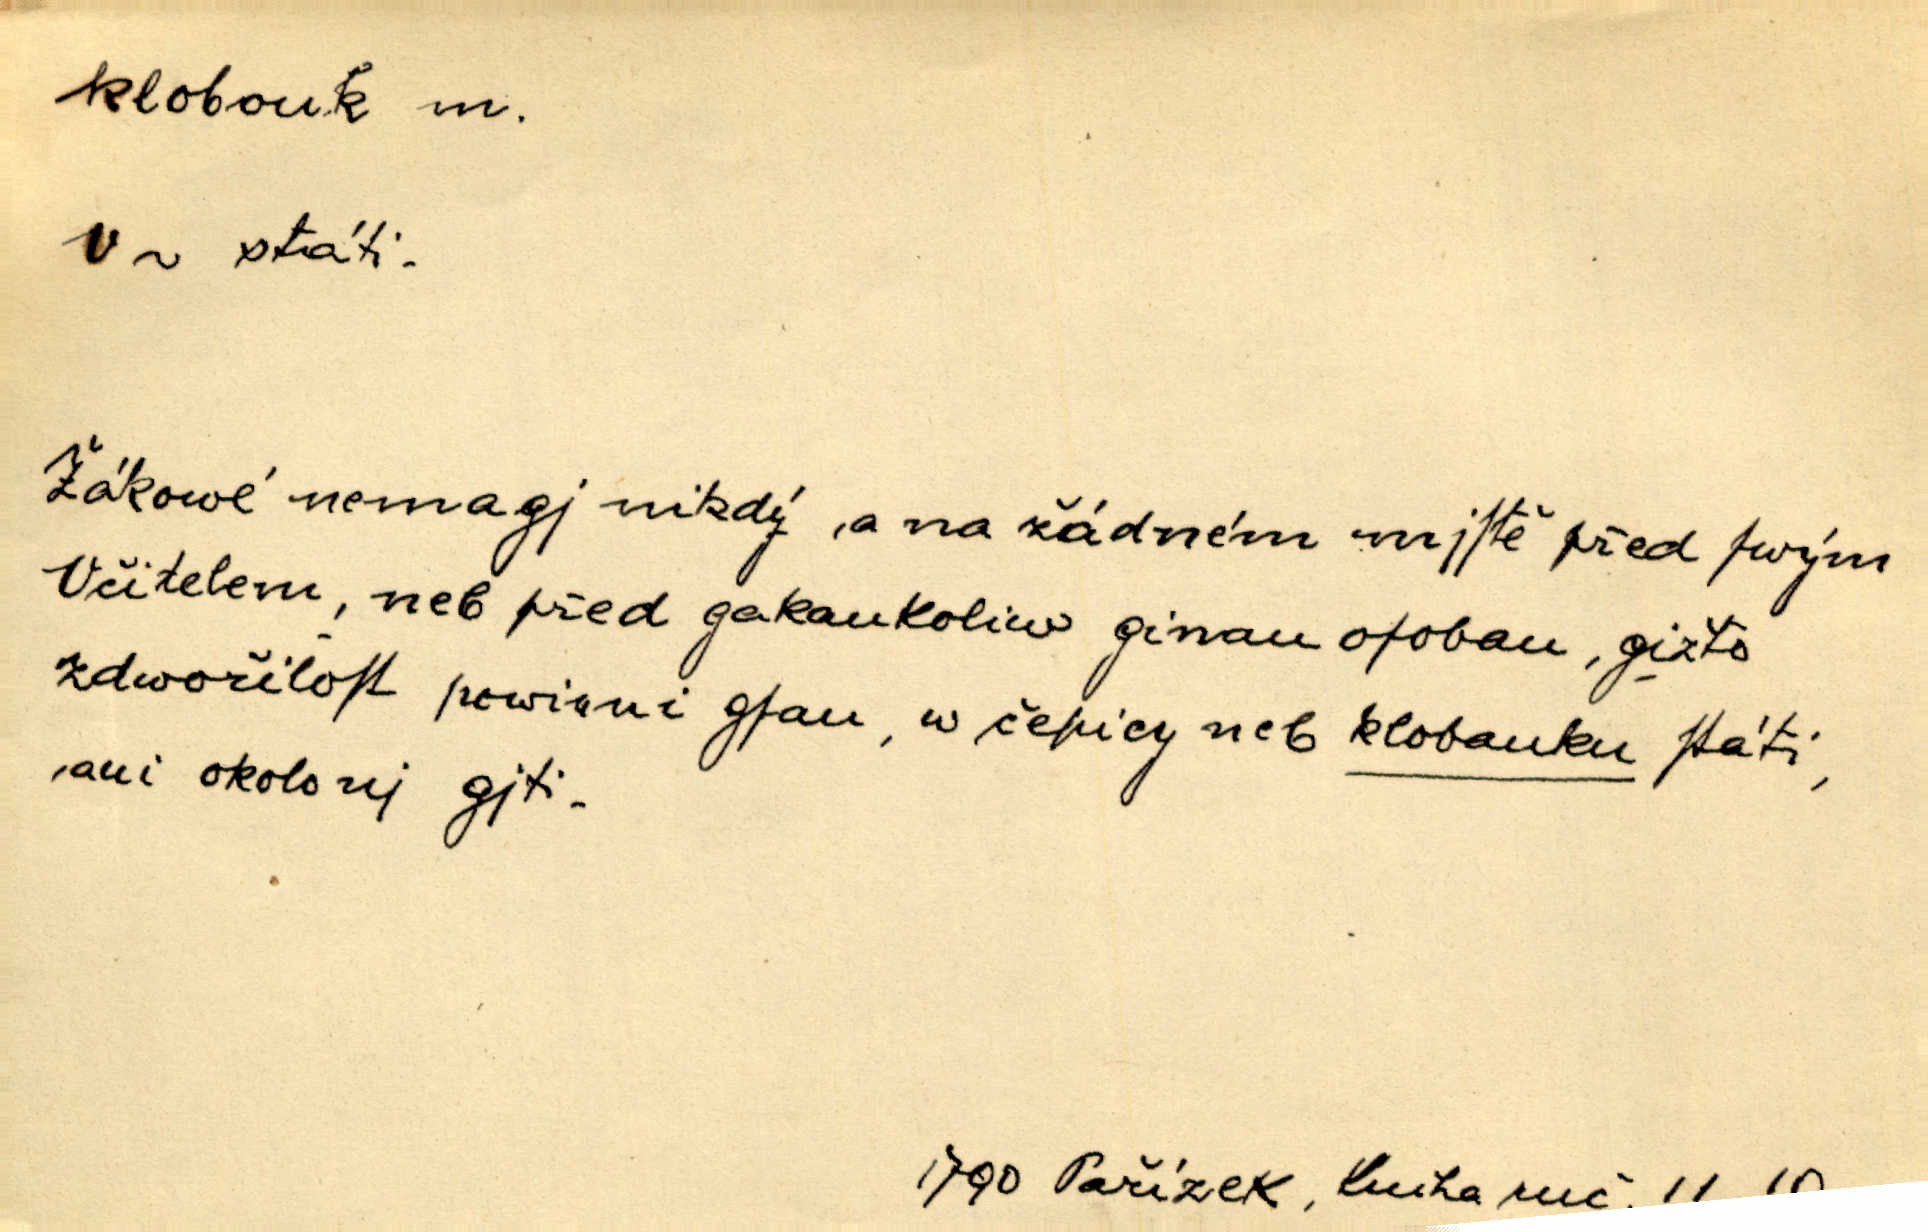 klobouk m.
V ~ státi.
Žákowé nemagj nikdý, a na žádném mjſtě před ſwým
Včitelem, neb před gakaukoliw ginau oſobau, gižto
zdwořiloſt powinni gſau, w čepicy neb klobauku ſtáti,
ani okolo nj gjti.
1790 Pařízek, Kniha ruč.